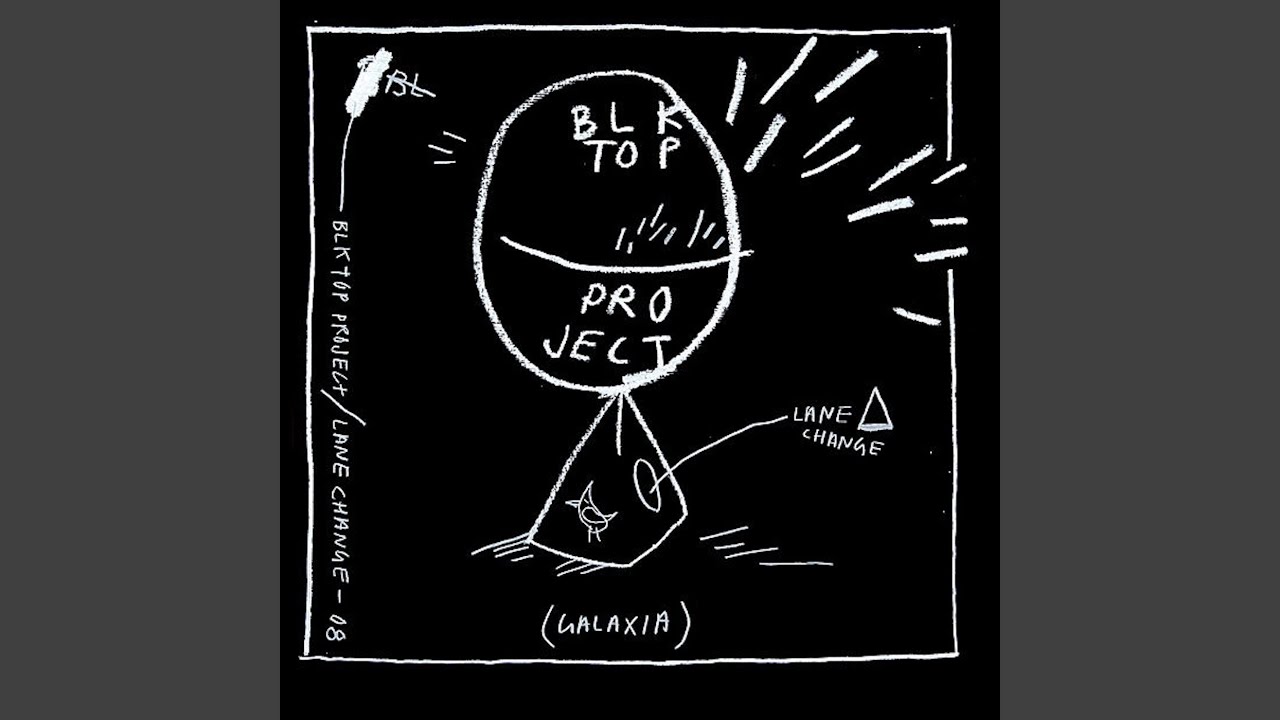 BL
BLK
TOP
PRO
JECT
LANE
CHANGE
BLKTOP PROJECT/LANE CHANGE - 08
(GALAXIA)